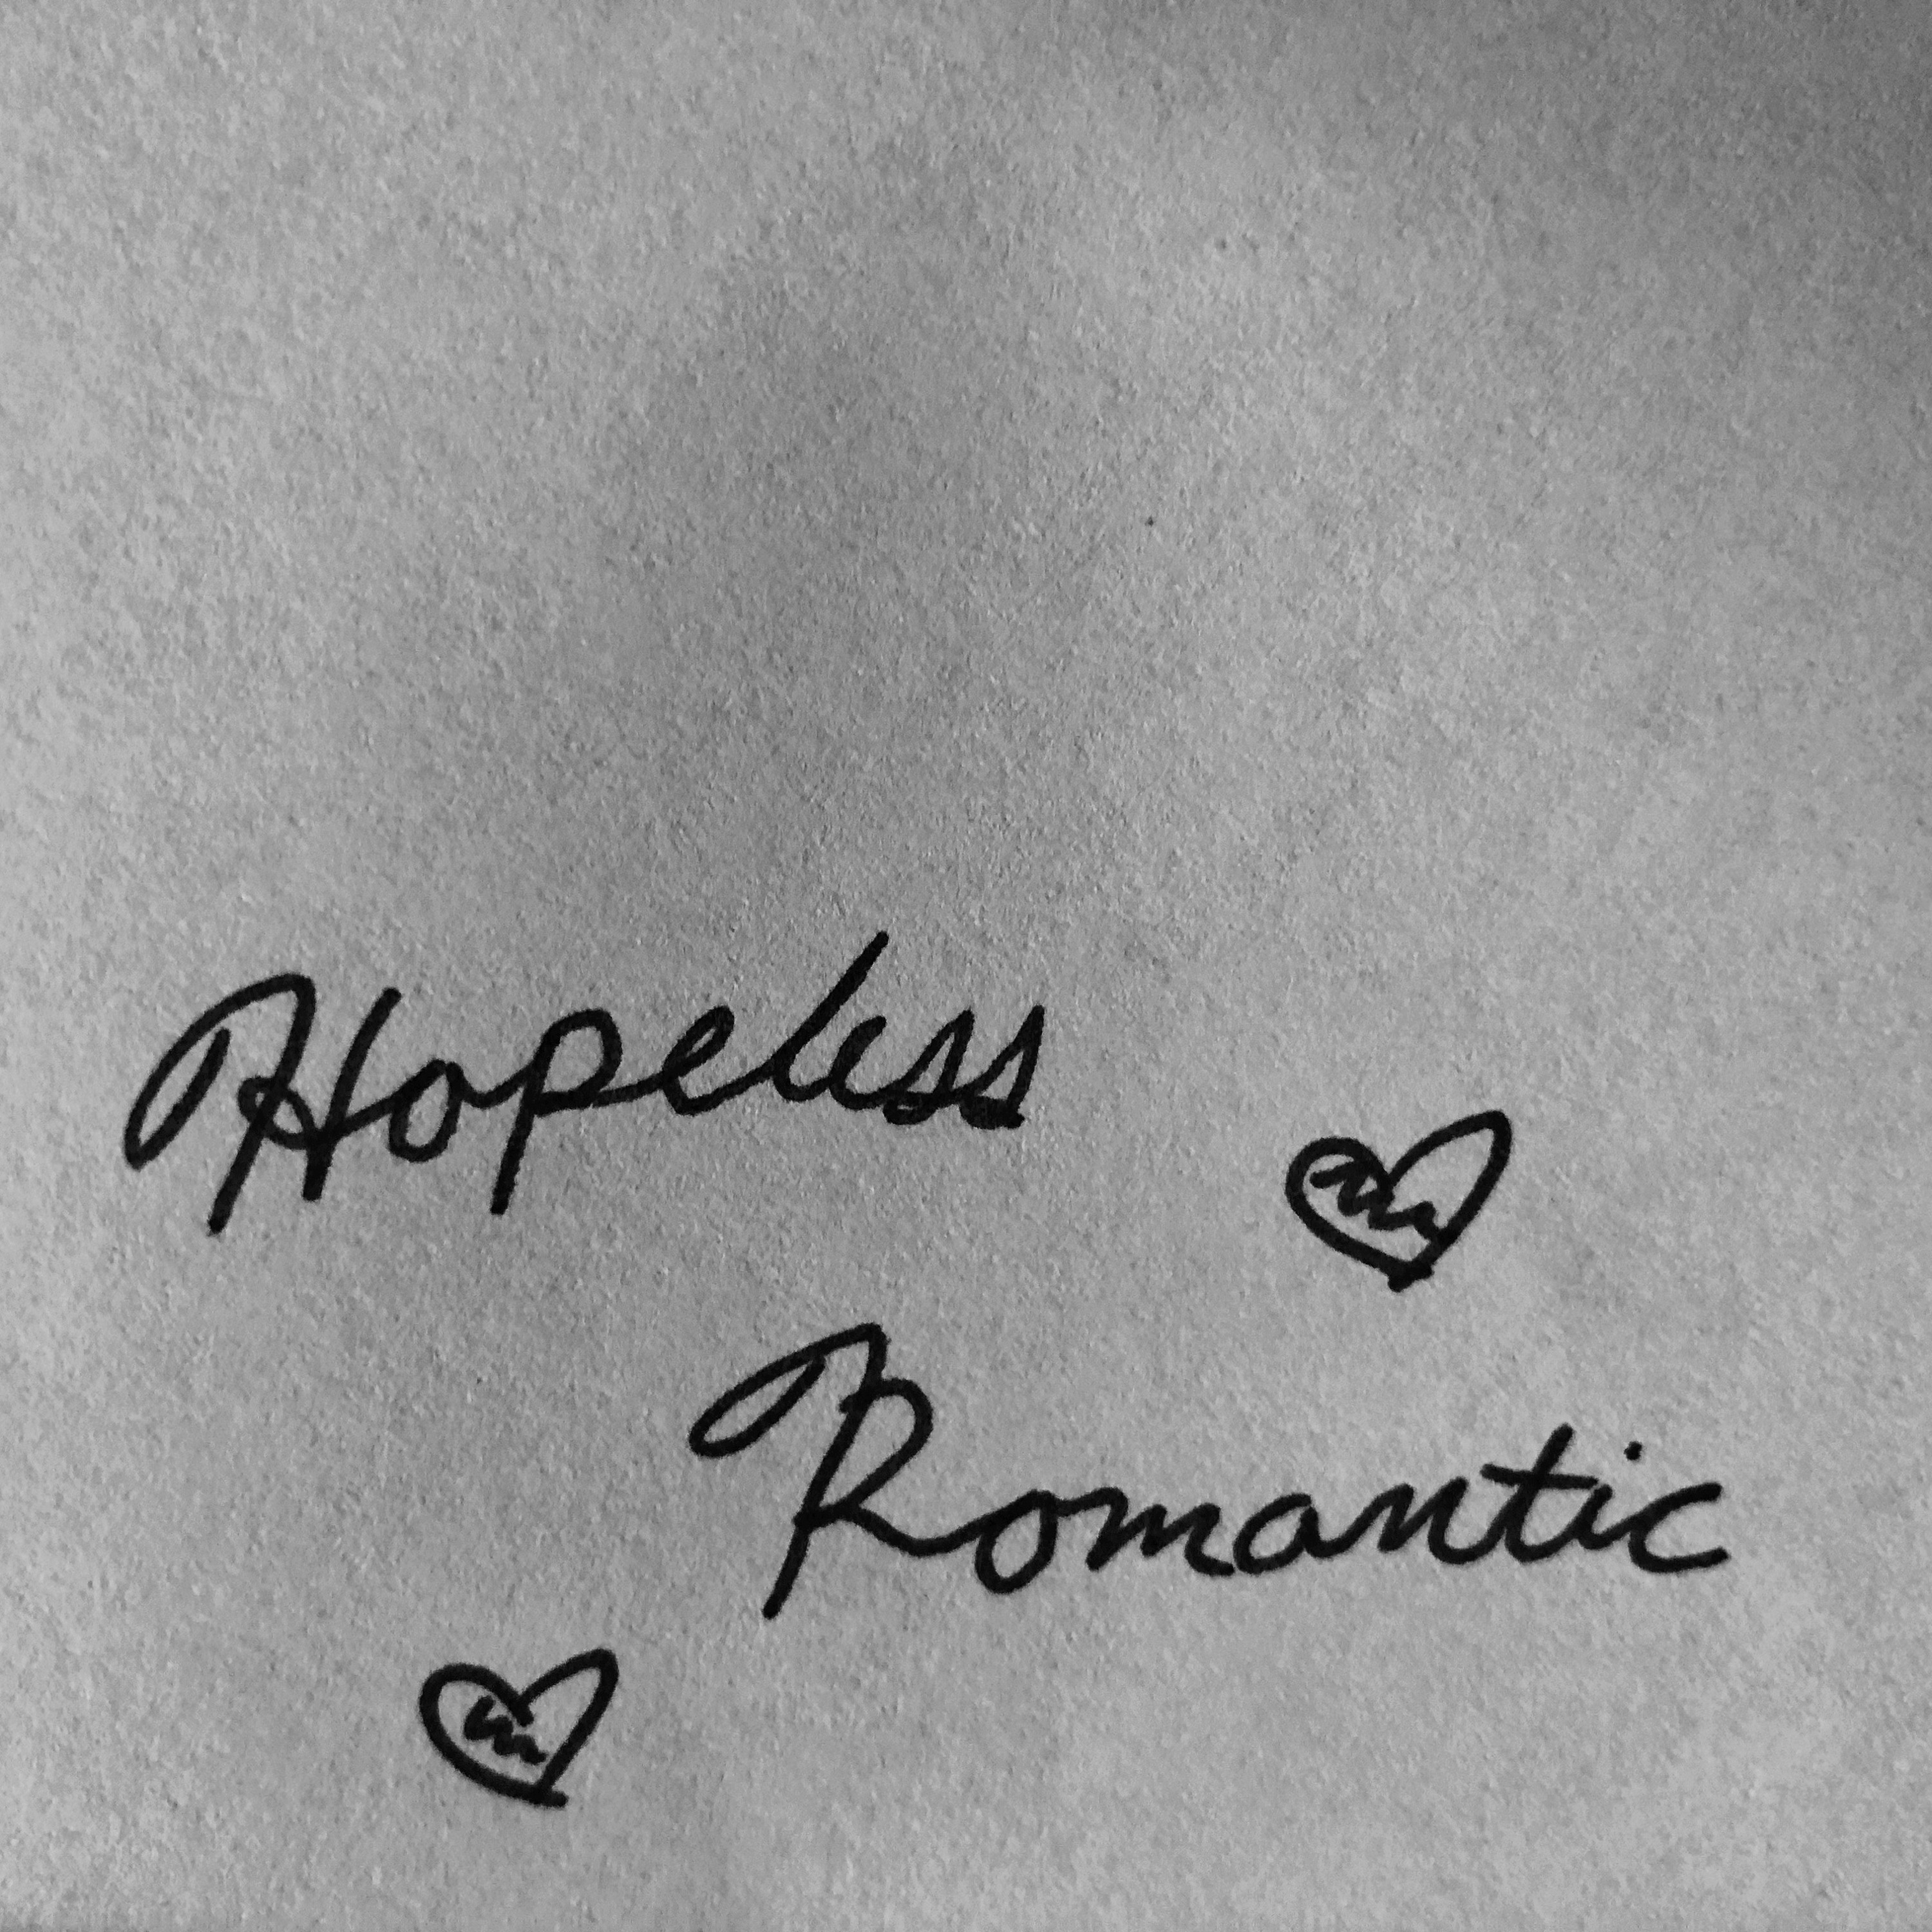 Hopeless
Romantic